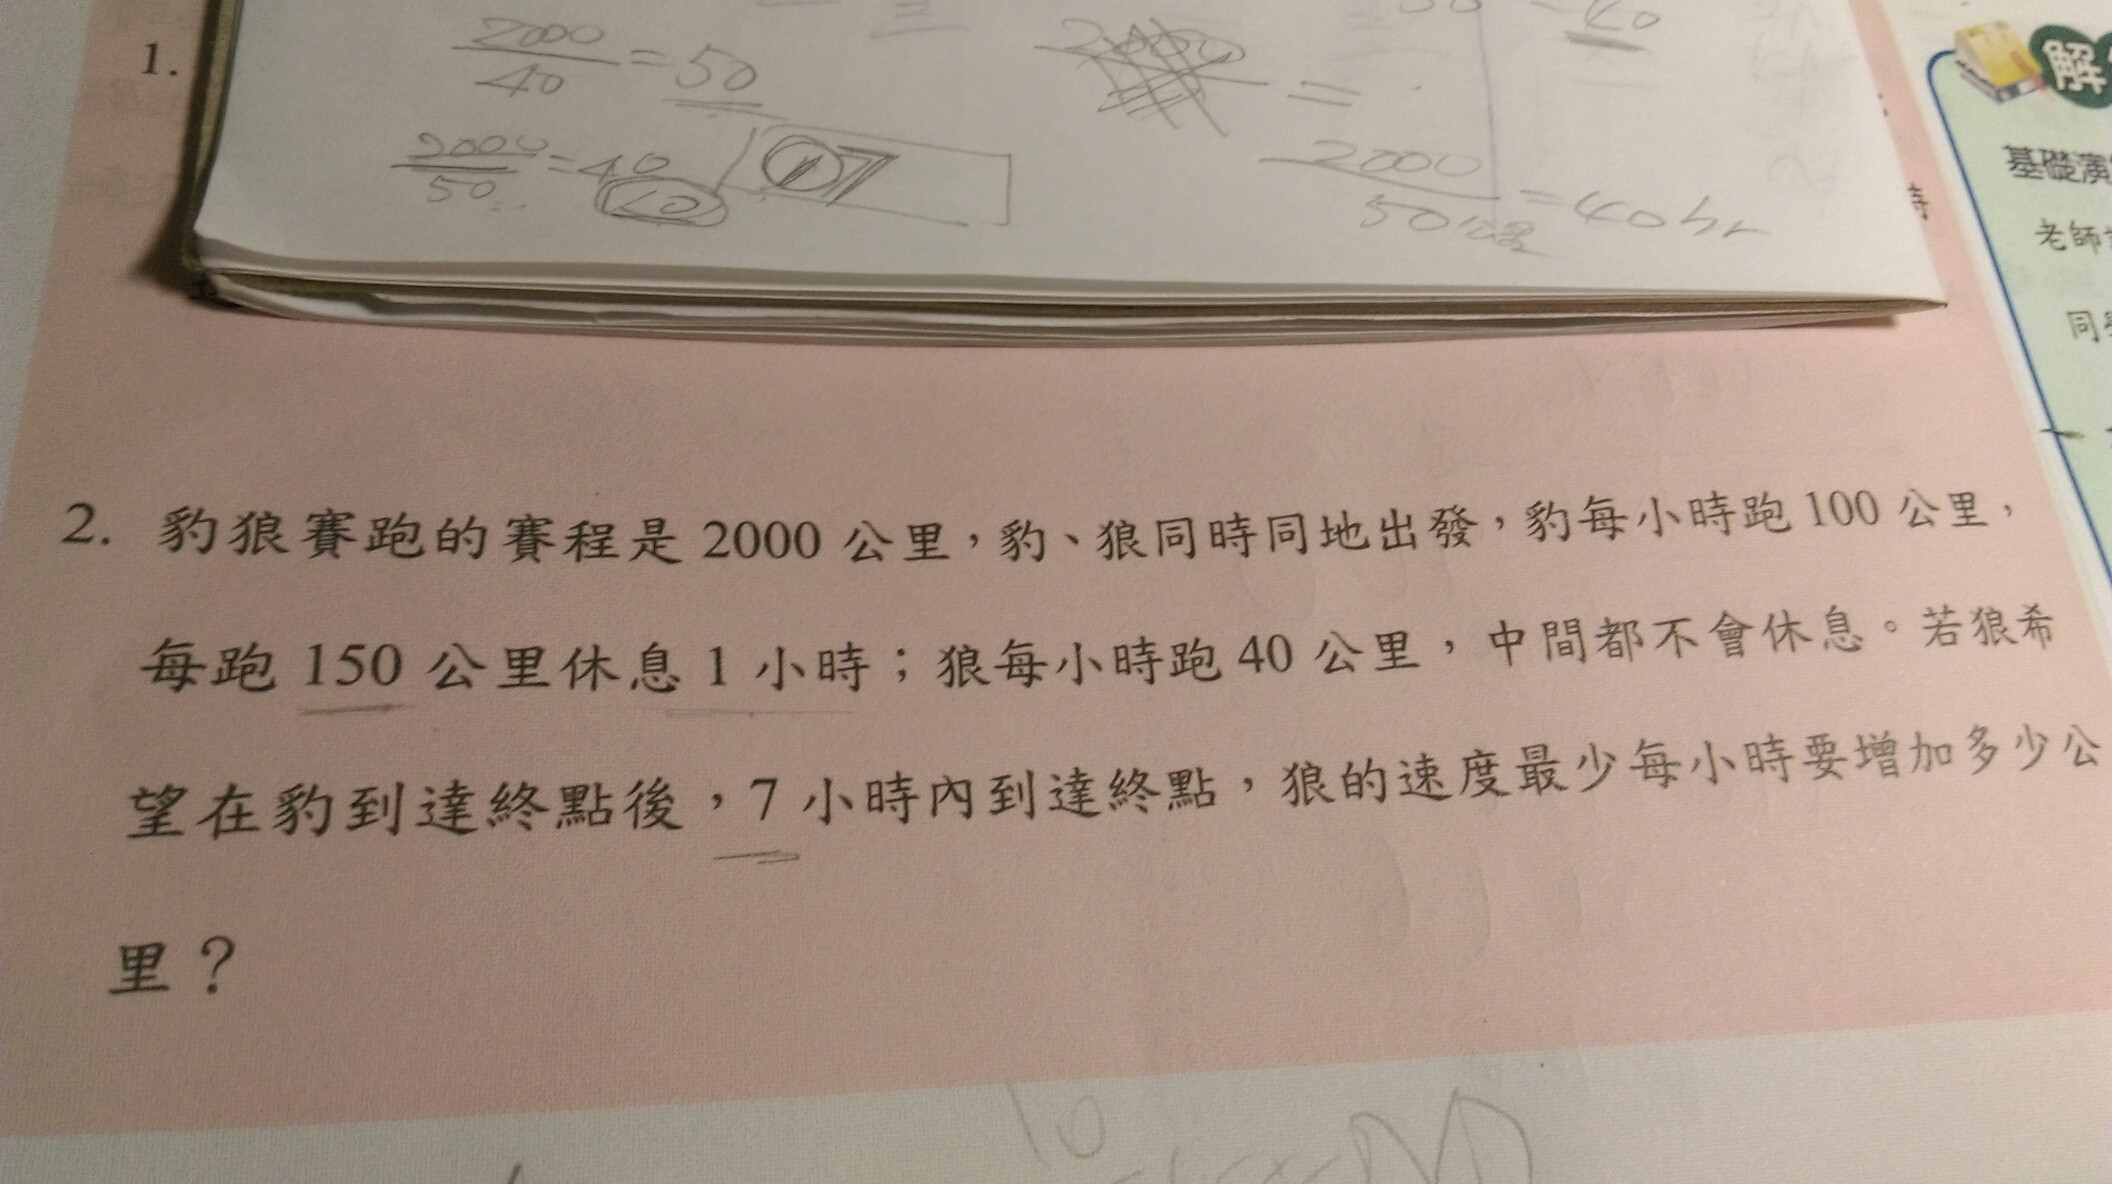 1.
2000/40 = 50
2000/50 = 40
10
7
40
2000/50 = 40hr
解
基礎演
老師
同學
時
2. 豹狼賽跑的賽程是 2000 公里，豹、狼同時同地出發，豹每小時跑 100 公里，
每跑 150 公里休息 1 小時；狼每小時跑 40 公里，中間都不會休息。若狼希
望在豹到達終點後，7 小時內到達終點，狼的速度最少每小時要增加多少公
里？
10